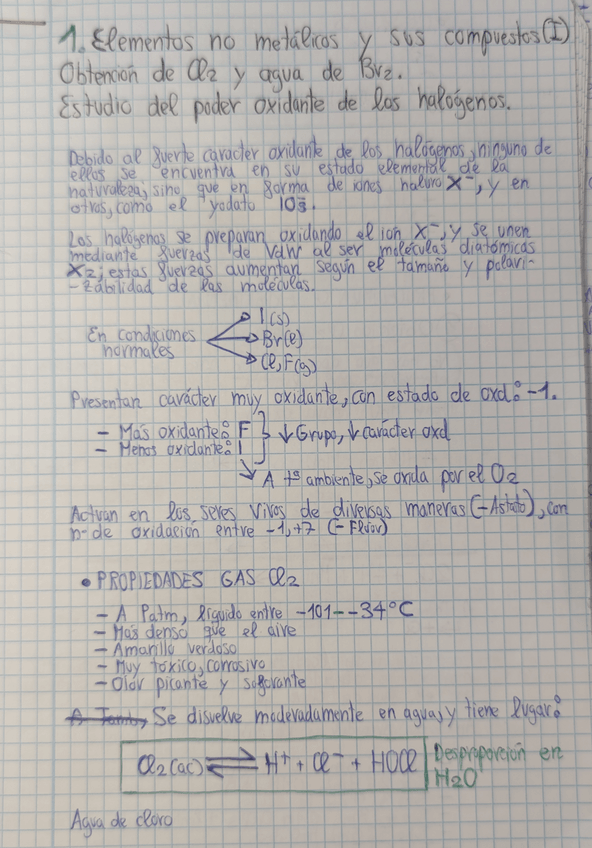 1. Elementos no metálicos y sus compuestos (I)
Obtención de Cl2 y agua de Br2.
Estudio del poder oxidante de los halógenos.
Debido al fuerte caracter oxidante de los halógenos, ninguno de
ellos se encuentra en su estado elemental de la
naturaleza, sino que en forma de iones haluro X⁻, y en
otros, como el yodato IO3⁻.
Los halógenos se preparan oxidando el ion X⁻, y se unen
mediante fuerzas de VdW al ser moléculas diatómicas
X2; estas fuerzas aumentan según el tamaño y polari-
-zabilidad de las moléculas.
En condiciones normales
I(s)
Br(l)
Cl, F(g)
Presentan carácter muy oxidante, con estado de oxd: -1.
- Más oxidante: F
- Menos oxidante: I
↓ Grupo, ↓ carácter oxd
A tª ambiente, se oxida por el O2
Actuan en los seres vivos de diversas maneras (-Astato), con
nº de oxidación entre -1, +7 (-Flúor)
• PROPIEDADES GAS Cl2
- A Patm, líquido entre -101--34°C
- Más denso que el aire
- Amarillo verdoso
- Muy tóxico, corrosivo
- Olor picante y sofocante
Se disuelve moderadamente en agua, y tiene lugar:
Cl2(ac) ⇌ H⁺ + Cl⁻ + HOCl
Desproporción en
H2O
Agua de cloro